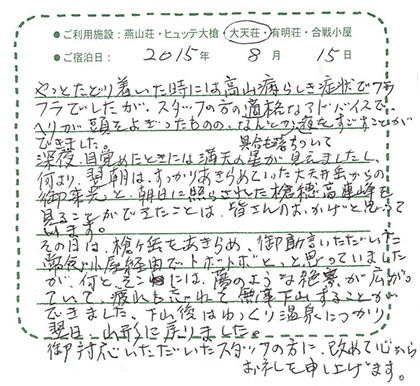 ●ご利用施設：燕山荘・ヒュッテ大槍・大天荘・有明荘・合戦小屋
●ご宿泊日： 2015年 8月 15日
やっとたどり着いた時には高山病らしき症状でフラ
フラでしたが、スタッフの方の適格なアドバイスで、
ヘリが頭をよぎったものの、なんとか
具合も落ちついて
できました。
深夜、目覚めたときには満天の星が見えましたし、
何より、翌朝は、すっかりあきらめていた大天井岳からの
御来光と、朝日に照らされた槍穂高連峰を
見ることができたことは、皆さんのおかげと思って
います。
その日は、槍ヶ岳をあきらめ、御助言いただいた
小屋経由でトボトボと、と思っていました
が、何とそこには、夢のような絶景が広がっ
ていて、疲れも忘れて無事下山することが
できました。下山後はゆっくり温泉につかり
翌日、山形に戻りました。
御対応いただいたスタッフの方に、改めて心から
お礼を申し上げます。